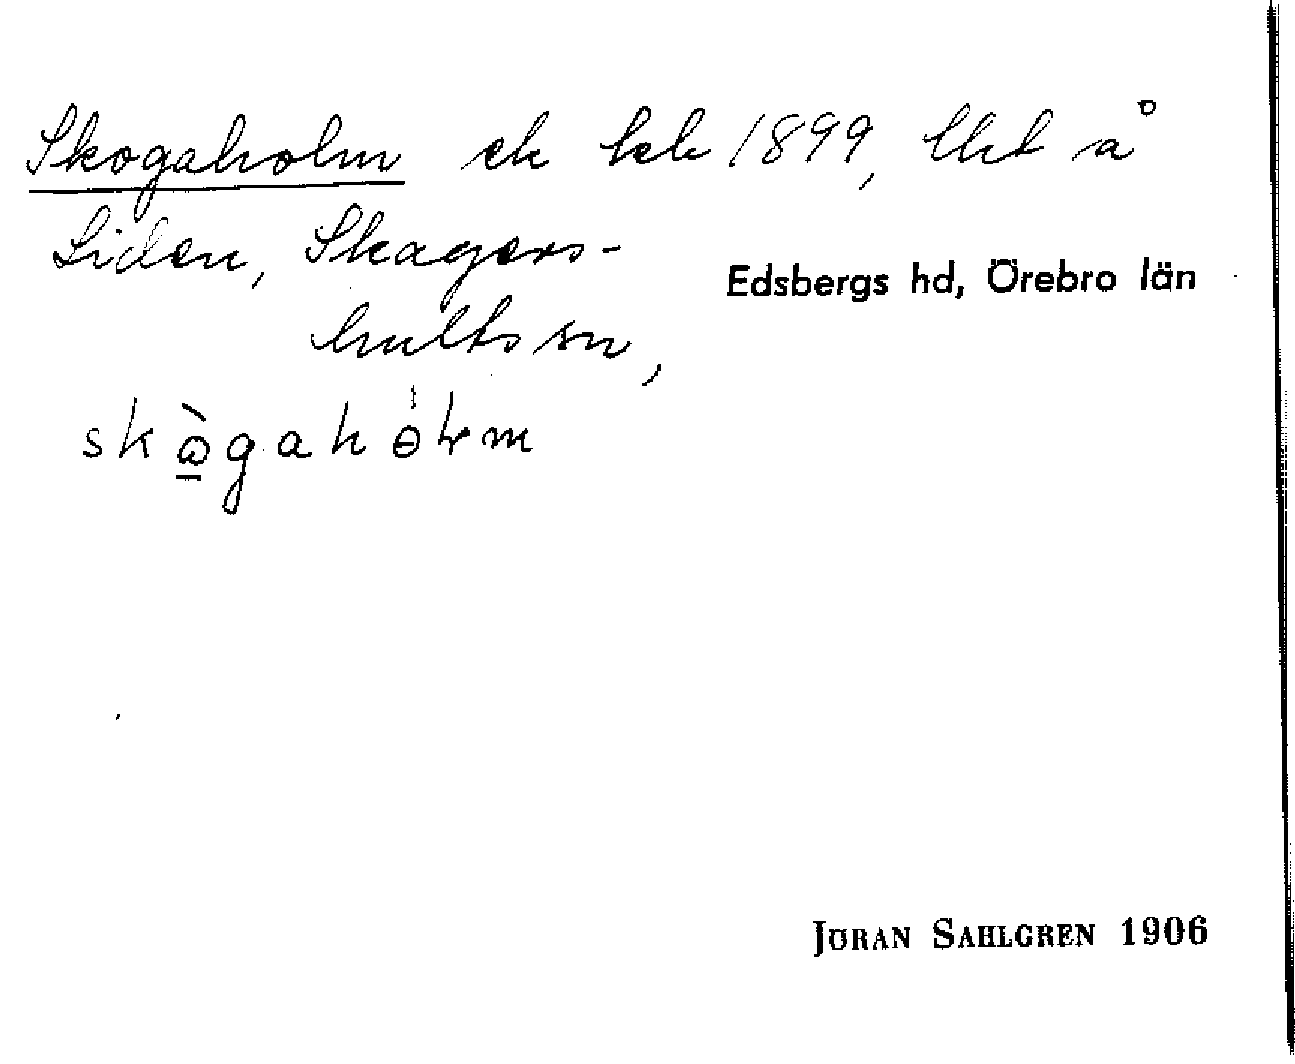 Skogaholm ek kek 1899, lht å
Liden, Skagers-
hults sn,
Edsbergs hd, Örebro län
JÖRAN SAHLGREN 1906